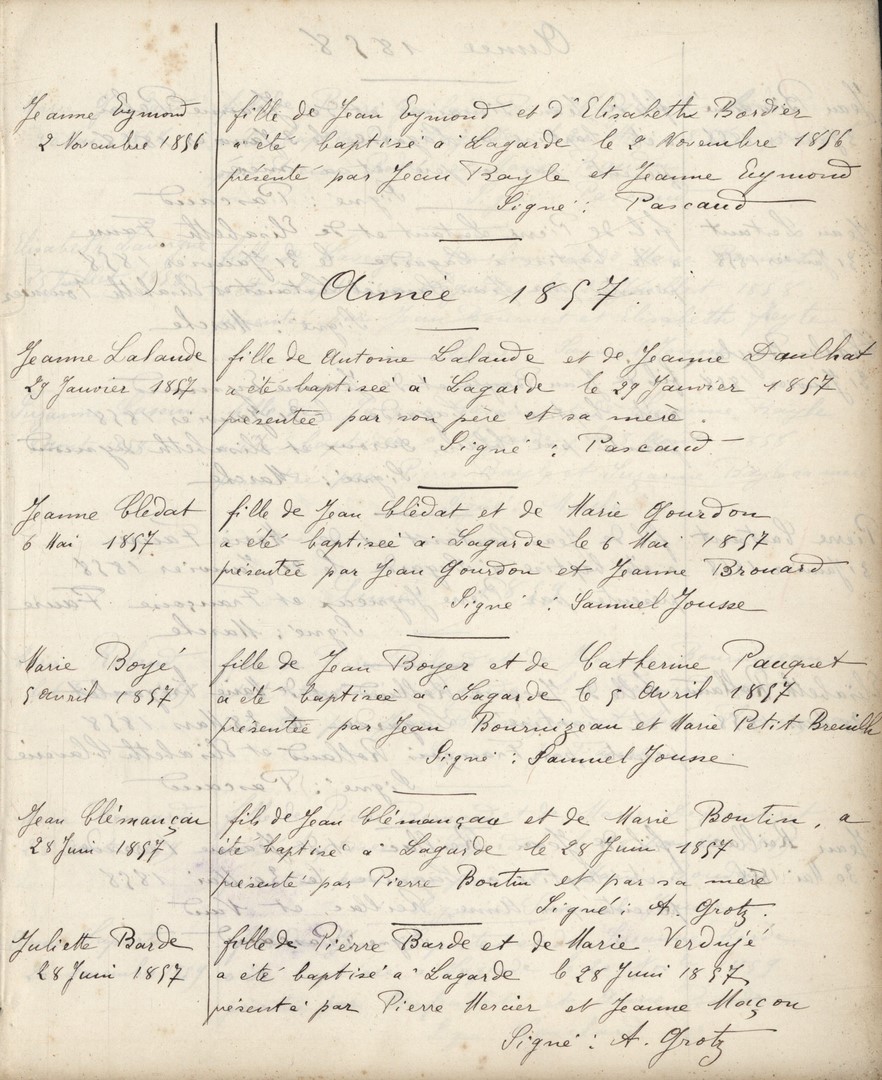 Jeanne Eymond
2 Novembre 1856
fille de Jean Eymond et d'Elisabeth Bordier
a été baptisé à Lagarde le 2 Novembre 1856
présenté par Jean Bayle et Jeanne Eymond
Signé : Pascaud
Année 1857.
Jeanne Lalande
29 Janvier 1857
fille de Antoine Lalande et de Jeanne Daulhat
a été baptiseé à Lagarde le 29 Janvier 1857
présentée par son père et sa mère.
Signé : Pascaud
Jeanne Clédat
6 Mai 1857
fille de Jean Clédat et de Marie Gourdon
a été baptiseé à Lagarde le 6 Mai 1857
présentée par Jean Gourdon et Jeanne Brouard
Signé : Samuel Jousse
Marie Boyé
5 avril 1857
fille de Jean Boyer et de Catherine Pauquet
a été baptisee à Lagarde le 5 Avril 1857
présentée par Jean Bournizeau et Marie Petit Breuilh
Signé : Samuel Jousse
Jean Clémançau
28 Juin 1857
fils de Jean Clémançau et de Marie Boutin, a
été baptisé à Lagarde le 28 Juin 1857
présenté par Pierre Boutin et par sa mère
Signé : A. Grotz.
Juliette Barde
28 Juin 1857
fille de Pierre Barde et de Marie Verdujé
a été baptisé à Lagarde le 28 Juin 1857
présenté par Pierre Mercier et Jeanne Maçon
Signé : A. Grotz